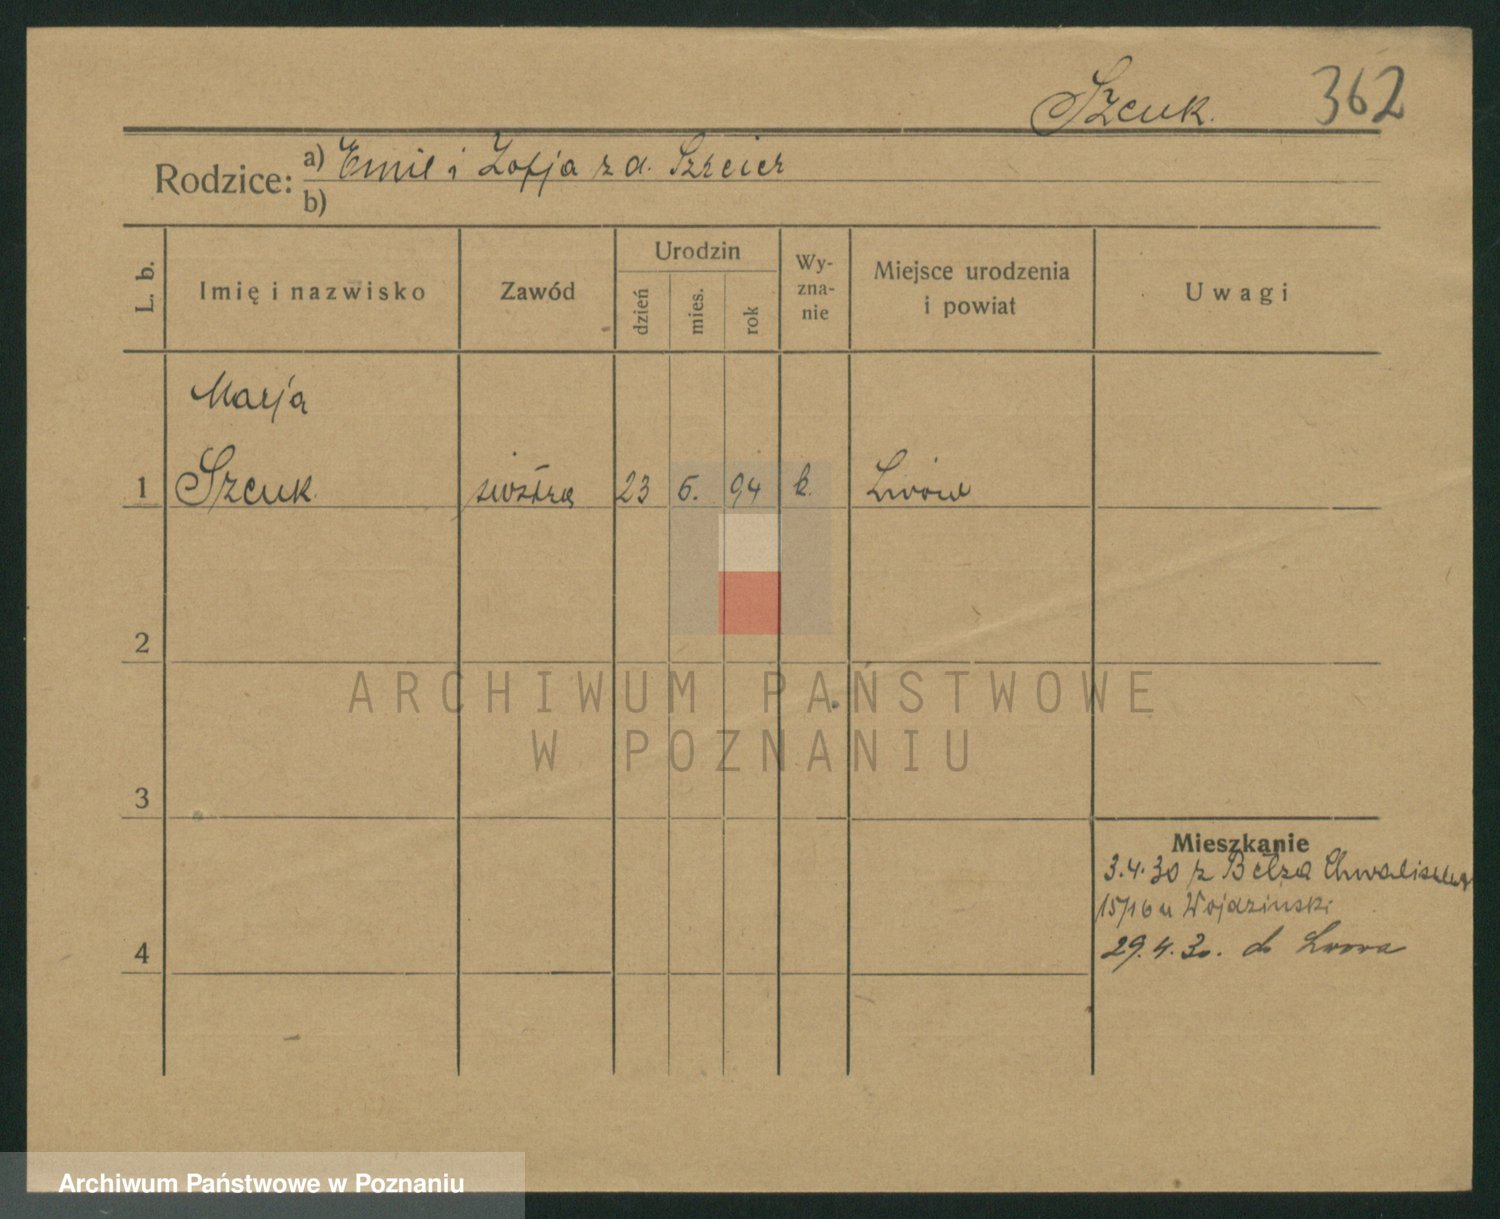 Szcuk. 362
Rodzice: a) Emil i Zofja z d. Szreier
b)
L. b. Imię i nazwisko Zawód Urodzin dzień mies. rok Wy-zna-nie Miejsce urodzenia i powiat Uwagi
Marja
1 Szcuk. siostra 23 6. 94 k. Lwów
2
ARCHIWUM PAŃSTWOWE
W POZNANIU
3
Mieszkanie
3.4.30 z Bełza
15/16 u Wojdziński
29.4.30. do Lwowa
4
Archiwum Państwowe w Poznaniu